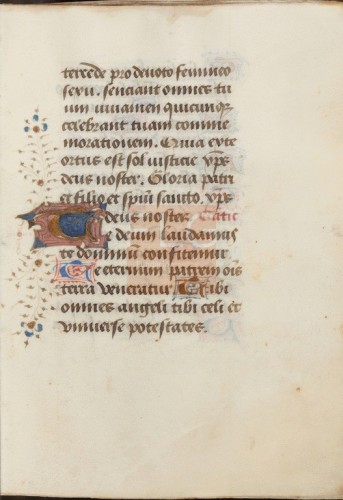 terẽde pro deuoto femineo
sexu. senciant omnes tu
um iuuamen quicunq̃
celebrant tuam comme
morationem. Quia ex te
ortus est sol iusticie xp̃s
deus noster. Gloria patri
et filio et spiũi sancto. xp̃s
deus noster. Cantic
Te deum laudamus
te dominũ confitemur
Te eternum patrem oĩs
terra veneratur Tibi
omnes angeli tibi celi et
vniuerse potestates.